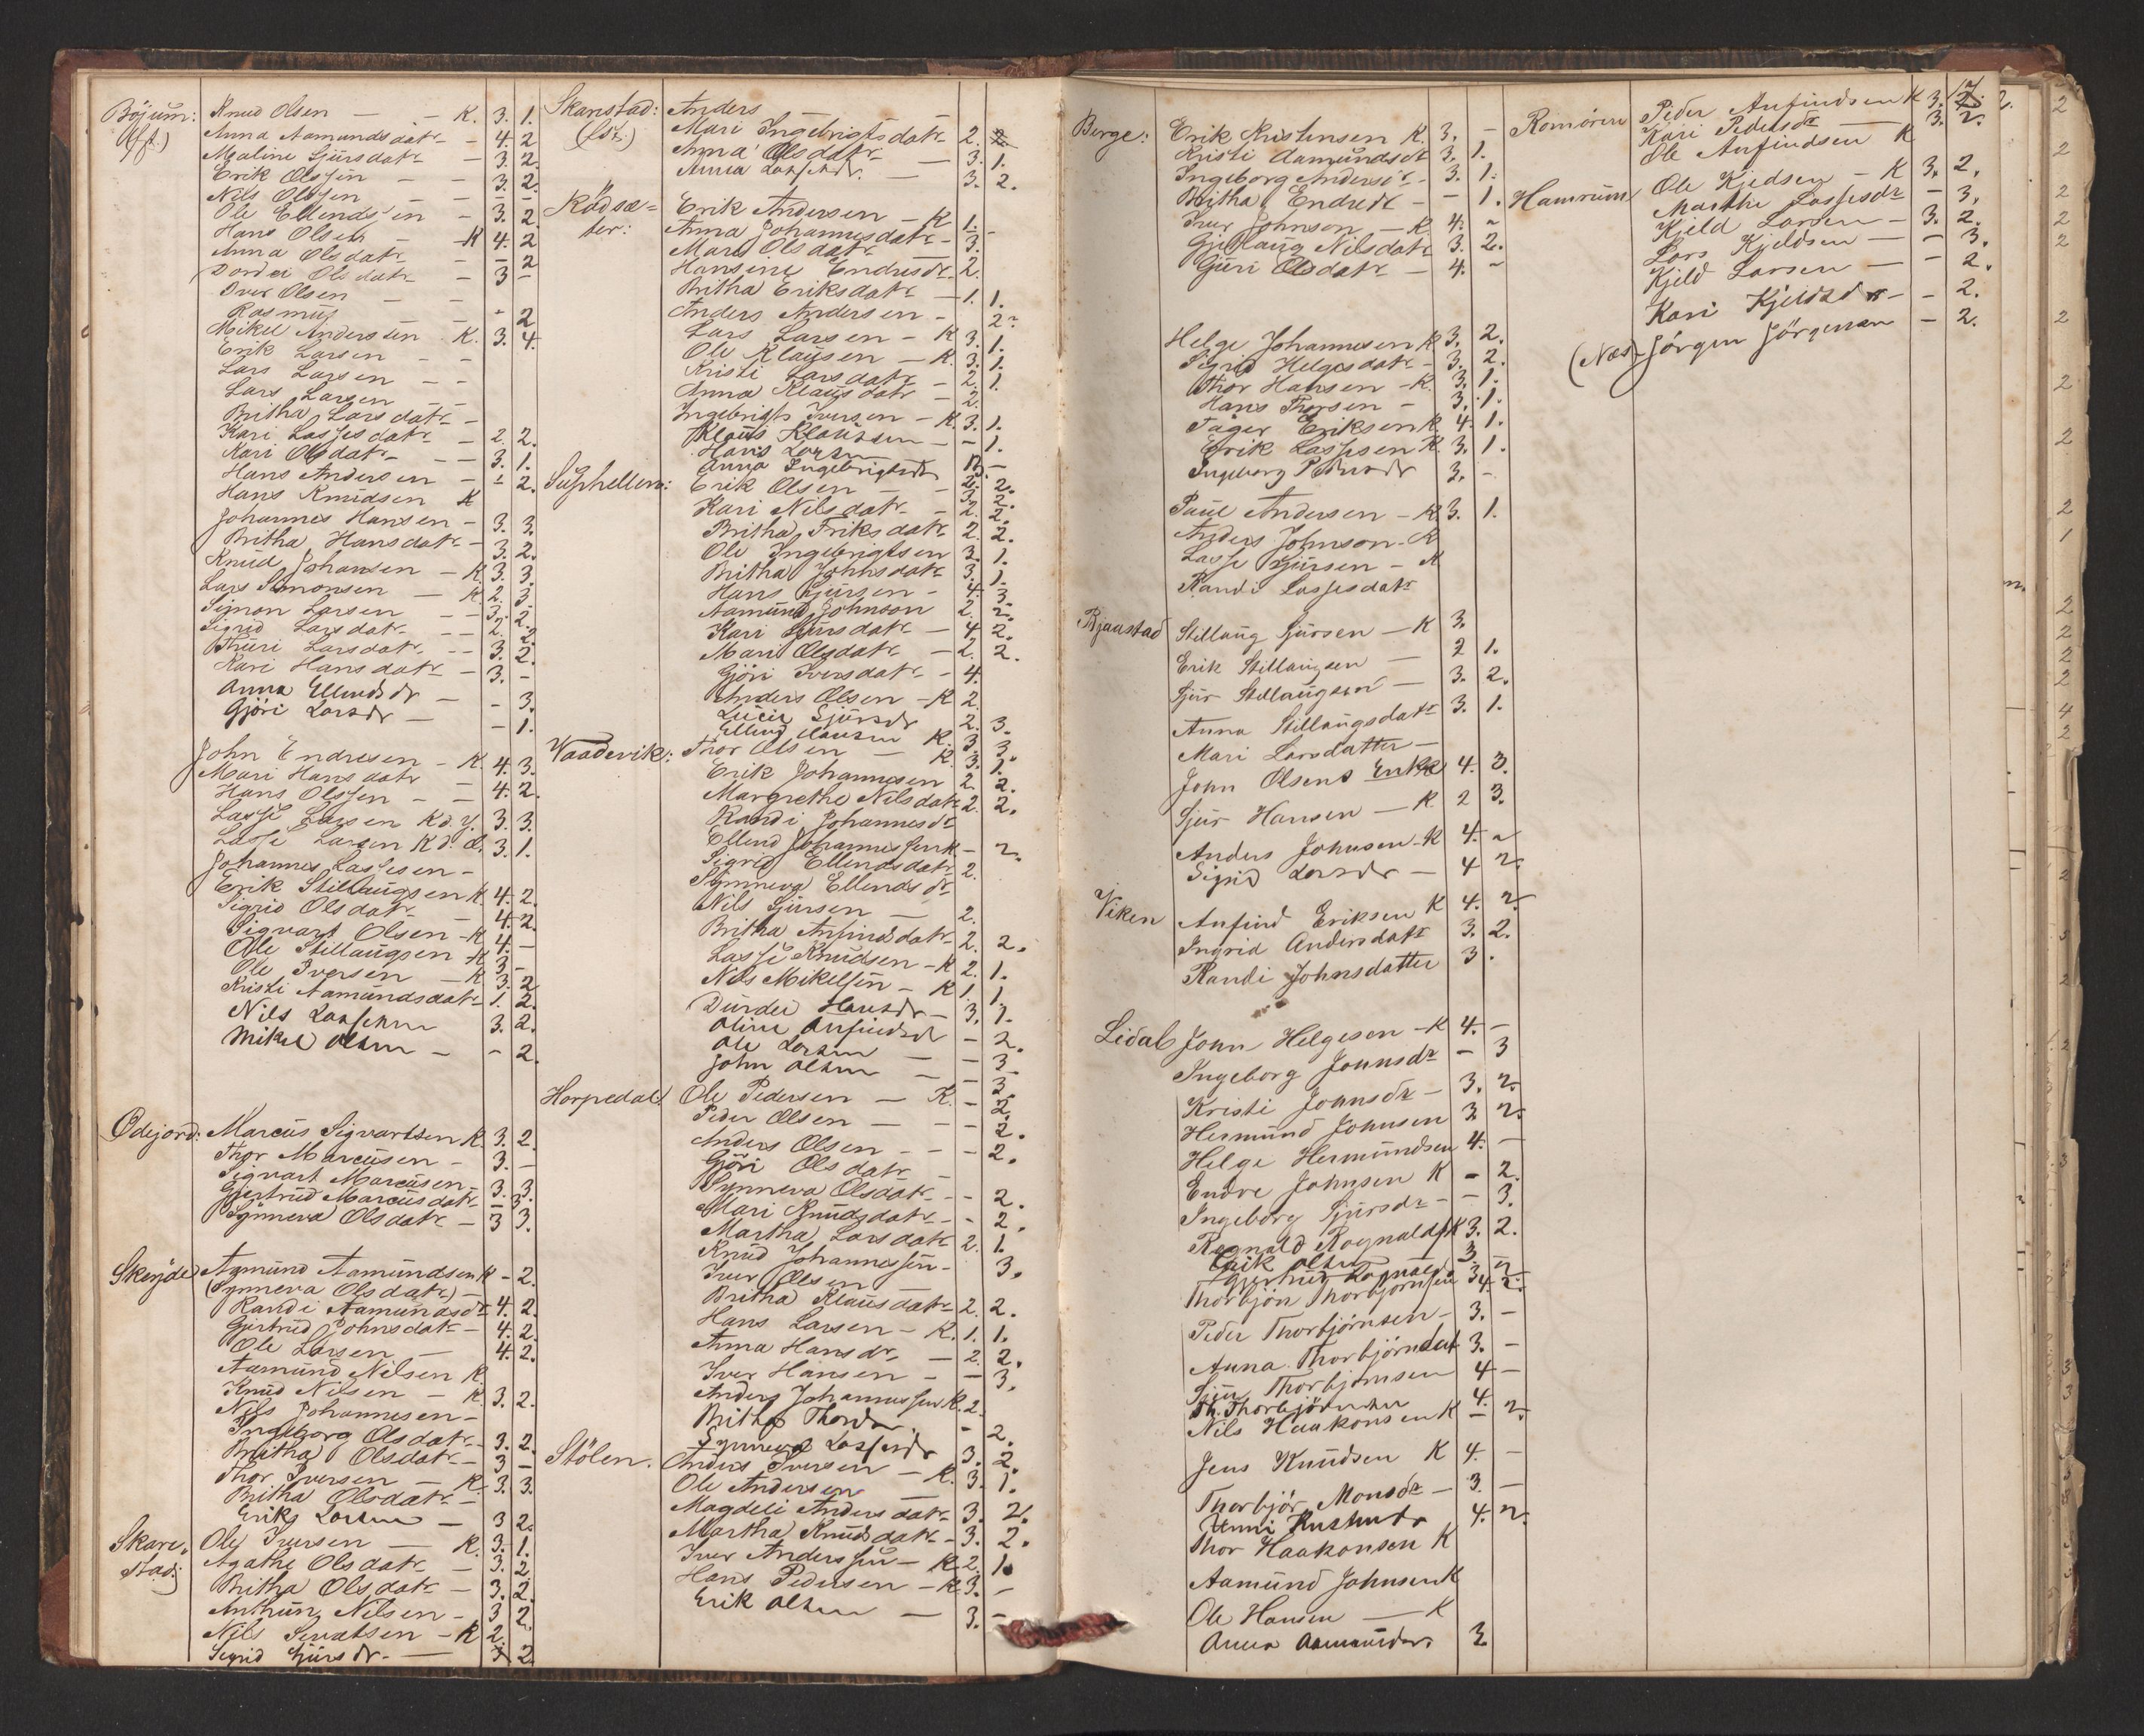 Böjum: Knud Olsen — — K. 3. 1.
Anna Aamundsdatr — 4. 2
Maline Sjursdatr — 3. 2.
Erik Olssen — — 3. 2.
Nils Olssen — — — —
Ole Ellendsen — 3. 2.
Hans Olsen — K 4. 2
Anna Olsdatr — — 2
Dordei Olsdatr — 3 —
Iver Olsen — —
Rasmus — — - 2
Mikel Anderssen K. 3. 4.
Erik Larsen — —
Lars Larsen — —
Lars Larsen — —
Britha Larsdatr —
Kari Lassesdatr — 2. 2.
Kari Olsdatr — — 3. 1.
Hans Andersen — - 2.
Hans Knudsen K
Johannes Hansen — 3. 3.
Britha Hansdatr — 3. 2.
Knud Johansen — K. 3. 3.
Lars Simonsen — K. 2. 3
Simon Larsen — — 3. 2.
Sigrid Larsdatr — — 2. 2
Thuri Larsdatr — — 3. 2.
Kari Hansdatr — 3. -
Anna Ellendsdr — - 3.
Gjöri Larsdr — - 1.
John Endresen — K. 4. 3.
Mari Hansdatr — 4. 2.
Hans Olssen — —
Lasse Larsen K d. y. 3. 3.
Lasse Larsen K d. æ. 3. 1.
Johannes Lassesen —
Erik Stillaugsen K. 4. 2.
Sigrid Olsdatr — 4. 2.
Sigvart Olsen — K 4. —
Ole Stillaugsen K 3 —
Ole Iversen — K 3. 2
Kristi Aamundsdatr 1. 2.
Nils Lassesen 3. 2.
Mikel Olsen — - 2.
Ödejord: Marcus Sigvartsen K. 3. 2.
Thor Marcusen — 3. —
Sigvart Marcusen — 3. 3.
Gjertrud Marcusdatr — 3.
Synneva Olsdatr — 3 3.
Skeide Aamund Aamundsen K - 2.
(Synneva Olsdatr) —
Randi Aamundsdr 4. 2.
Gjertrud Johnsdatr — 4. 2.
Ole Larsen — 4. 2.
Aamund Nilsen K.
Knud Nilsen — K. 3. 2.
Nils Johannesen —
Ingeborg Olsdatr — 3. 2.
Britha Olsdatr — 3 —
Thor Iversen — K. 3. 3.
Britha Olsdatr —
Erik Larsen — 3 2.
Skare- Ole Iversen — K. 3. 1.
stad: Agathe Olsdatr — 3. 2
Britha Olsdatr — 3. 2.
Anthun Nilsen — 3 2.
Nils Sivatsen — K 2.
Sigrid Sjursdr. — 3 2
Skarestad: Anders — —
(fss.) Mari Ingebrigtsdatr 2. 2
Anna Olsdatr — 3. 1.
Anna Lassesdr. — 3. 2.
Rödsæ- Erik Andersen — K 1. -
ter: Anna Johannesdatr — 3.
Mari Olsdatr
Hansine Endresdr 2.
Britha Eriksdatr — 1. 1.
Anders Andersen — 2.
Lars Larsen — K 3. 1.
Ole Klausen — K. 3. 1.
Kristi Larsdatr — 2. 1.
Anna Klausdatr — 2.
Ingebrigt Iversen — K. 3. 1.
Klaus Klaussen — - 1.
Hans Larsen
Anna Ingebrigtsdr —
Suphellen: Erik Olsen — - 2. 2.
Kari Nilsdatr — 2. 2.
Britha Eriksdatr 2. 2.
Ole Ingebrigtsen 3. 1.
Britha Johnsdatr 3. 1.
Hans Sjursen — 4. 3
Aamund Johnson 2. 2.
Kari Sjursdatr — 4. 2.
Mari Olsdatr — 2. 2.
Gjöri Iversdatr — 4.
Anders Olsen — K 2.
Lucie Sjursdr 2. 3.
Ellend Hansen K. 3. 3.
Vaadevik: Thor Olsen — K. 3. 1.
Erik Johannesen 2. 2.
Margrethe Nilsdatr 2. 2.
Randi Johannesdr
Ellend Johannessen K — 2.
Sigrid Ellendsdatr 2.
Synneva Ellendsdr
Nils Sjursen — 2.
Britha Anfindsdatr 2. 2.
Lasse Knudsen — K 2. 1.
Nils Mikelsen — K 1. 1.
Durdei Hansdr — 3. 1.
Oline Anfindsdr — 2.
Ole Larsen — — 3
John Olsen — — 3.
Horpedal: Ole Pedersen — K. — 2.
Peder Olsen — — 2.
Anders Olsen — — 2.
Gjöri Olsdatr —
Synneva Olsdatr — - 2.
Mari Knudsdatr — - 2.
Martha Larsdatr 2. 1.
Knud Johannessen — 3.
Iver Olsen —
Britha Klausdatr 2. 2.
Hans Larsen — K. 1. 1.
Anna Hansdr — 2. 2.
Iver Hansen — — 3.
Anders Johannessen K. 2.
Britha Thorsdr - 2.
Synneva Lassesdr 3. 2.
Stölen. Anders Iversen — K. 3. 1.
Ole Andersen —
Magdeli Andersdatr 3. 2.
Martha Knudsdatr — 3. 2.
Iver Anderssen — K. 2. 1.
Hans Pedersen — K. 3. —
Erik Olsen — 3. —
Berge: Erik Kristensen K. 3. —
Kristi Aamundsdr 3. 1.
Ingeborg Andersdr — 3. 1.
Britha Endredr — - 1.
Iver Johnson — K. 4. -
Gjertaug Nilsdatr 3. 2.
Guri Olsdatr — 4. -
Helge Johannesen K 3. 2.
Sigrid Helgesdatr — 3. 2.
Thor Hansen — K. 3. 1.
Hans Thorsen — 3. 1.
Tøger Eriksen K. 4. 1.
Erik Lassesen K. 3. 1.
Ingeborg Pedersdr 3. -
Paul Andersen — K 3. 1.
Anders Johnson — K
Lasse Sjursen — K
Randi Lassesdatr
Bjaastad Stillaug Sjursen — K 3.
Erik Stillaugsen — 2 1.
Sjur Stillaugsen — 3. 2.
Anna Stillaugsdatr 3. 1.
Mari Larsdatter —
John Olsens Enke 4. 3.
Sjur Hansen — K. 2 3.
Anders Johnsen — K 4. -
Sigrid Larsdr — 4 2.
Viken Anfind Eriksen K 4. 2.
Ingrid Andersdatr 3. 2.
Randi Johnsdatter 3.
Lidal John Helgesen — K 4. —
Ingeborg Johnsdr — 3
Kristi Johnsdr — 3. 2.
Hermund Johnsen 3. 2.
Helge Hermundsen 4. —
Endre Johnsen K - 2.
Ingeborg Sjursdr — - 3.
Ragnald Ragnalds. K 3. 2.
Erik Olsen 3 —
Gjertrud Ragnaldsd. 3 2.
Thorbjön Thorbjörnsen 4. 2.
Peder Thorbjörnsen — 3. —
Anna Thorbjörndat 3. —
Sjur Thorbjörnsen 4 —
Th. Thorbjörnsen 4.
Nils Haakonsen K — 2.
Jens Knudsen K 4. —
Thorbjör Monsdr — 3 —
Unni Kristensdr 4. 2.
Thor Haakonsen K
Aamund Johnsen K
Ole Hansen — K
Anna Aamundsdr. 3.
Romören Peder Anfindsen K 3. 2.
Kari Pedersdr — 3. 2.
Ole Anfindsen K
Hamrum Ole Kjedsen — K 3. 2.
Marthe Lassesdr — 3.
Kjeld Larsen — 3. 2.
Lars Kjeldsen — — 3.
Kjeld Larsen — — 2.
Kari Kjeldsdr — - 2.
(Næs) Jörgen Jörgensen — 2.